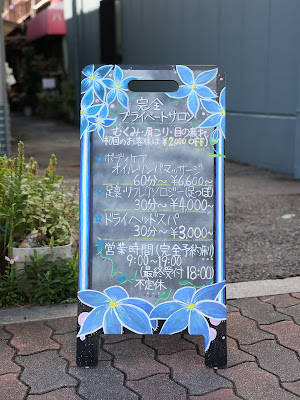 完全
プライベートサロン
むくみ・肩こり・目の疲れ
初回のお客様は¥2000 OFF
ボディケア
オイルリンパマッサージ
60分〜¥6,600〜
足裏・リフレクソロジー(足つぼ)
30分〜¥4,000〜
ドライヘッドスパ
30分〜¥3,000〜
営業時間(完全予約制)
9:00〜19:00
(最終受付18:00)
不定休